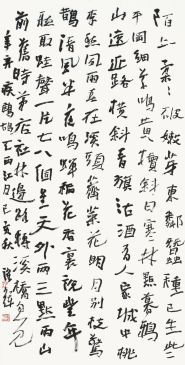 陌上柔桑破嫩芽東鄰蠶種已生些
平岡細草鳴黃犢斜日寒林點暮鴉
山遠近路橫斜青旗沽酒有人家城中桃
李愁風雨春在溪頭薺菜花明月別枝驚
鵲清風半夜鳴蟬稻花香裏說豐年
聽取蛙聲一片七八個星天外兩三點雨山
前舊時茅店社林邊路轉溪橋忽見
辛棄疾鷓鴣天西江月己亥秋